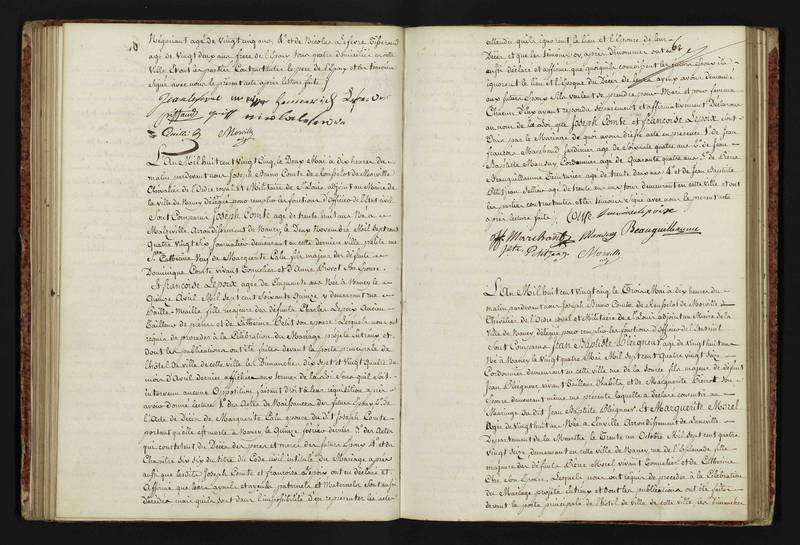 Négociant agé de Vingt cinq ans 4° et de Nicolas Lefevre
agé de Vingt deux ans frere de l'Epoux tous quatre domiciliés en cette
Ville et ont les parties Contractantes le pere de l'Epoux et les temoins
Signé avec nous le présent acte après lecture faite
Morville
L'An Mil huit cent Vingt Cinq, le Deux Mai à dix heures du
matin pardevant nous Joseph Bruno Comte de Morville
Chevalier de l'Ordre royal et Militaire de St Louis, adjoint au Maire de
la ville de Nancy délégué pour remplir les fonctions d'Officier de l'Etat civil
Sont Comparus Joseph Comte agé de trente huit ans Né à
Malzéville Arrondissement de Nancy, le Deux Novembre Mil sept cent
Quatre Vingt six Journalier demeurant en cette derniere ville
Ste Catherine Veuf de Marguerite Lalu fils majeur des défunts
Dominique Comte vivant Tonnelier et d'Anne Pierot son Epouse.
Et françoise Lepoix agée de Cinquante ans Née à Nancy le
Quinze Avril Mil Sept cent Soixante Quinze y demeurant rue
fille majeure des défunts Charles Lepoix
Tailleur de pierres et de Catherine Petit son epouse Lesquels nous ont
requis de procéder à la Célébration du Mariage projeté entr'eux et
dont les publications ont été faites devant la porte principale de
l'hôtel de ville de cette ville les Dimanches dix sept et Vingt quatre du
mois d'Avril dernier affichées aux termes de la loi sans qu'il soit
intervenu aucune Opposition faisant droit à leur réquisition après
avoir donné lecture 1° des Actes de Naissances des futurs Epoux 2° de
l'Acte de Décès de Marguerite Lalu epouse du dit Joseph Comte
portant qu'elle est morte à Nancy le Quinze fevrier dernier 3° des Actes
qui constatent du Décès des peres et meres des futurs Epoux 4° et du
Chapitre Six du titre du Code civil intitulé du Mariage après
quoi les dits Joseph Comte et françoise Lepoix ont déclaré et
Affirmé que leurs ayeuls et ayeules paternels et Maternels sont aussi
Décédés mais qu'ils sont dans l'impossibilité d'en représenter les actes
attendu qu'ils ignorent le lieu et l'Epoque de leur
Décès et que les témoins cy après dénommés ont
aussi déclaré et affirmé que quoiqu'ils connoissent les futurs Epoux ils
ignorent le lieu et l'Epoque du Décès de leurs ayeux avons demandé
aux futurs Epoux s'ils veulent se prendre pour Mari et pour femme
Chacun d'eux ayant répondu séparément et affirmativement Déclarons
au nom de la Loi que Joseph Comte et françoise Lepoix sont
Unis par le Mariage de quoi avons dressé acte en présence 1° de Jean
françois Marchand Jardinier agé de Soixante quatre ans 2° de Jean
Baptiste Mansuy Cordonnier agé de Quarante quatre ans 3° de Pierre
Beauguillaume Teinturier agé de trente deux ans 4° et de Jean Baptiste
Petit Jean Sellier agé de trente un ans tous demeurant en cette ville et ont
les parties contractantes et les temoins Signé avec nous le present acte
après lecture faite
Marchand Mansuy Beauguillaume
Petitjean Morville
L'An Mil huit cent Vingt cinq le Trois Mai à dix heures du
matin pardevant nous Joseph Bruno Comte de Morville
Chevalier de l'Ordre royal et Militaire de St Louis adjoint au Maire de la
Ville de Nancy délégué pour remplir les fonctions d'Officier de l'Etat civil
Sont Comparus Jean Baptiste Pleigneur agé de Vingt huit ans
Né à Nancy le Vingt quatre Mai Mil sept cent quatre Vingt
Cordonnier demeurant en cette ville rue de la Source fils majeur de défunt
Jean Pleigneur vivant et de Marguerite son
Epouse demeurant même rue présente laquelle a déclaré consentir au
Mariage du dit Jean Baptiste Pleigneur. Et Marguerite Morel
Agée de Vingt huit ans Née à Arrondissement de Lunéville
Département de la Meurthe le Trente un Octobre Mil sept cent quatre
Vingt Seize, demeurant en cette ville de Nancy rue de l'Esplanade fille
majeure des défunts Morel vivant Tonnelier et de Catherine
son Epouse. Lesquels nous ont requis de procéder à la Célébration
du Mariage projeté entr'eux et dont les publications ont été faites
devant la porte principale de l'hôtel de ville de cette ville les Dimanches